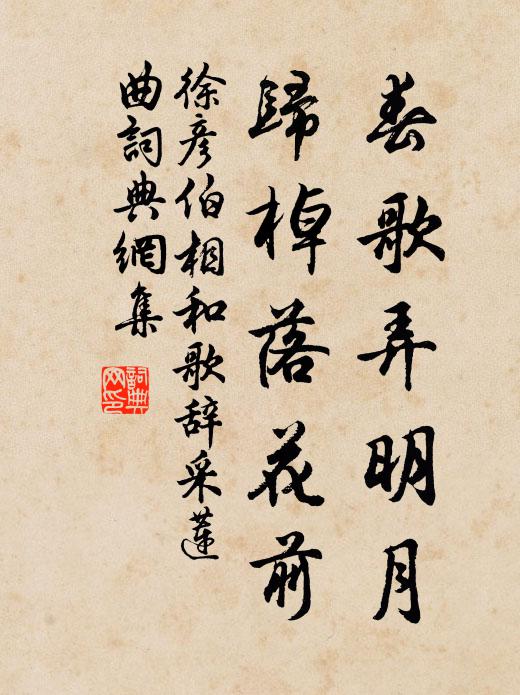 春歌弄明月
歸棹落花前
徐彦伯相和歌辞采蓮
曲詞典網集
詞典網印